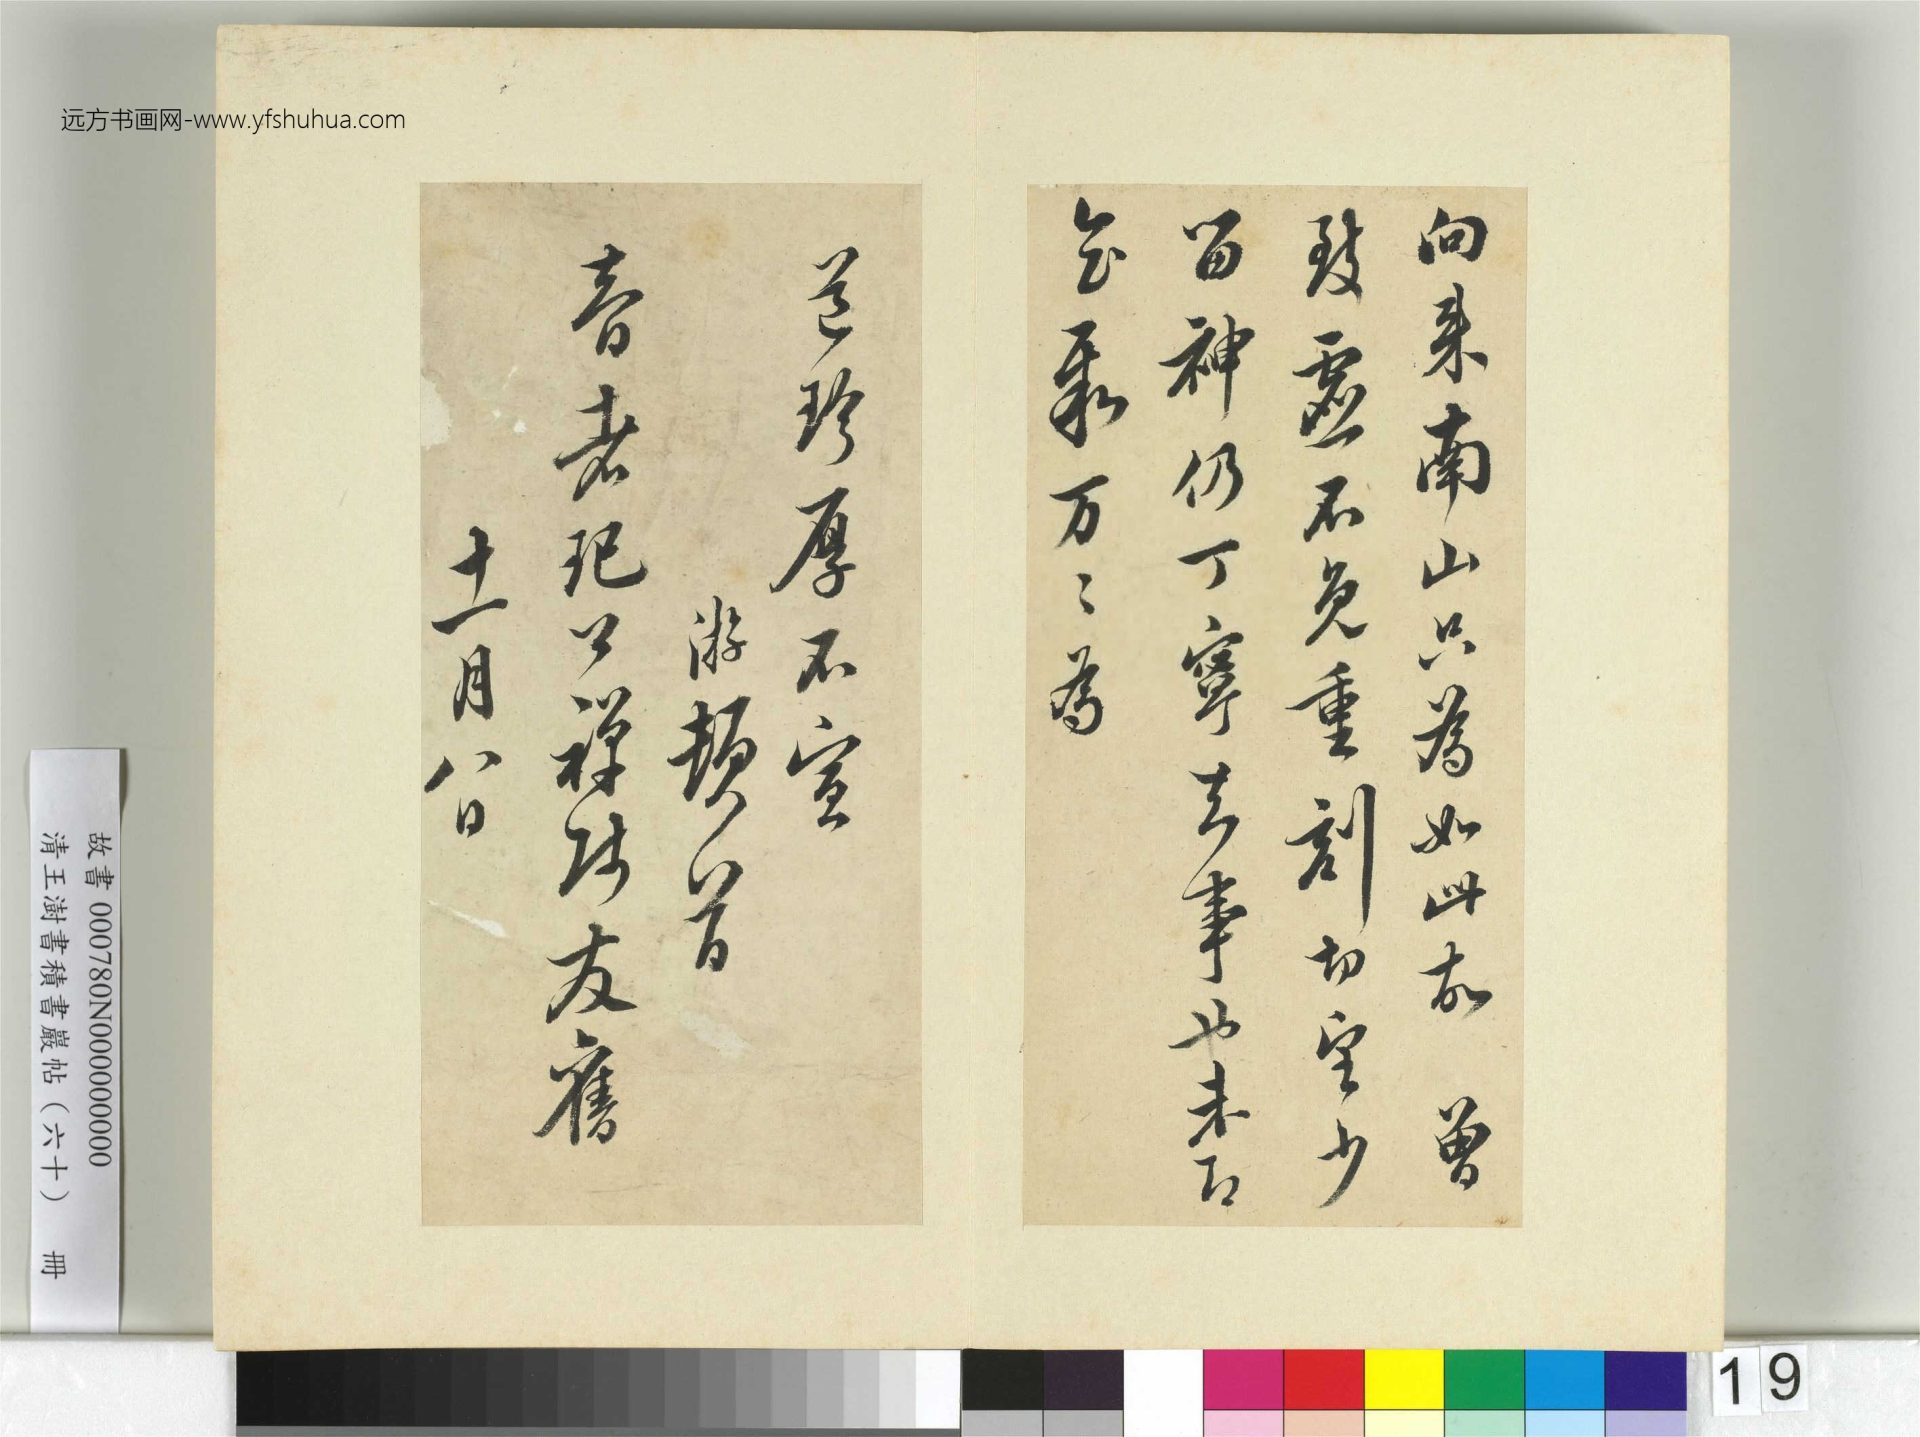 远方书画网-www.yfshuhua.com
向来南山只為如此故曾
致虚不免重刻切望少
留神仍丁寧去事也未即
会聚万〻為
道珍厚不宣
游頓首
春老記公禅師友舊
十一月八日
故書 000780N000000000
清王澍書積書巖帖(六十) 冊
19